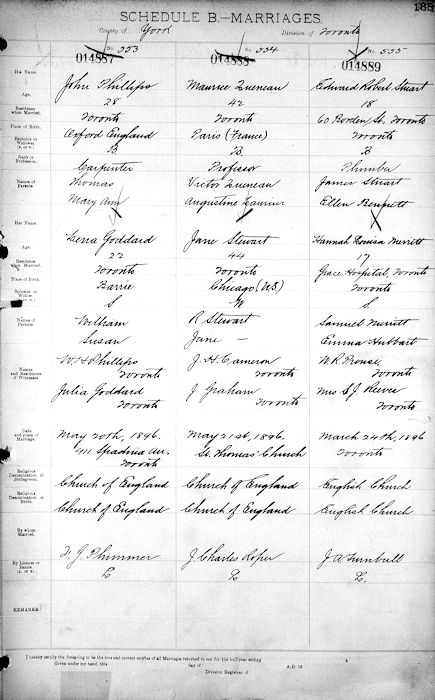 188
SCHEDULE B.—MARRIAGES.
County of York
Division of Toronto
No. 553
No. 554
No. 555
014887
014888
014889
His Name.
John Phillips
Maurice Queneau
Edward Robert Stuart
Age.
28
42
18
Residence when Married.
Toronto
Toronto
60 Borden St. Toronto
Place of Birth.
Oxford England
Paris (France)
Toronto
Bachelor or Widower. (B. or W.)
B
B
B
Rank or Profession.
Carpenter
Professor
Plumber
Names of Parents.
Thomas
Victor Queneau
James Stuart
Mary Ann
Augustine Laurier
Ellen Bennett
Her Name.
Lena Goddard
Jane Stewart
Hannah Louisa Merritt
Age.
22
44
17
Residence when Married.
Toronto
Toronto
Grace Hospital, Toronto
Place of Birth.
Barrie
Chicago (U.S)
Toronto
Spinster or Widow.
S
W
S
Names of Parents.
William
R Stewart
Samuel Merritt
Susan
Jane —
Emma Hubbart
Names and Residences of Witnesses.
W. H Phillips
J. H. Cameron
W R Prouse
Toronto
Toronto
Toronto
Julia Goddard
J. Graham
Mrs E. J. Reeves
Toronto
Toronto
Toronto
Date and place of Marriage.
May 20th, 1896.
May 21st, 1896.
March 24th, 1896
411 Spadina Av.
St. Thomas' Church
Toronto
Toronto
Religious Denomination of Bridegroom.
Church of England
Church of England
English Church
Religious Denomination of Bride.
Church of England
Church of England
English Church
By whom Married.
J. Charles Roper
J. A Turnbull
By License or Banns. (L. or B.)
L
L
L.
REMARKS
I hereby certify the foregoing to be the true and correct entries of all Marriages returned to me for the half-year ending
Given under my hand, this
day of
A.D. 18
Division Registrar of